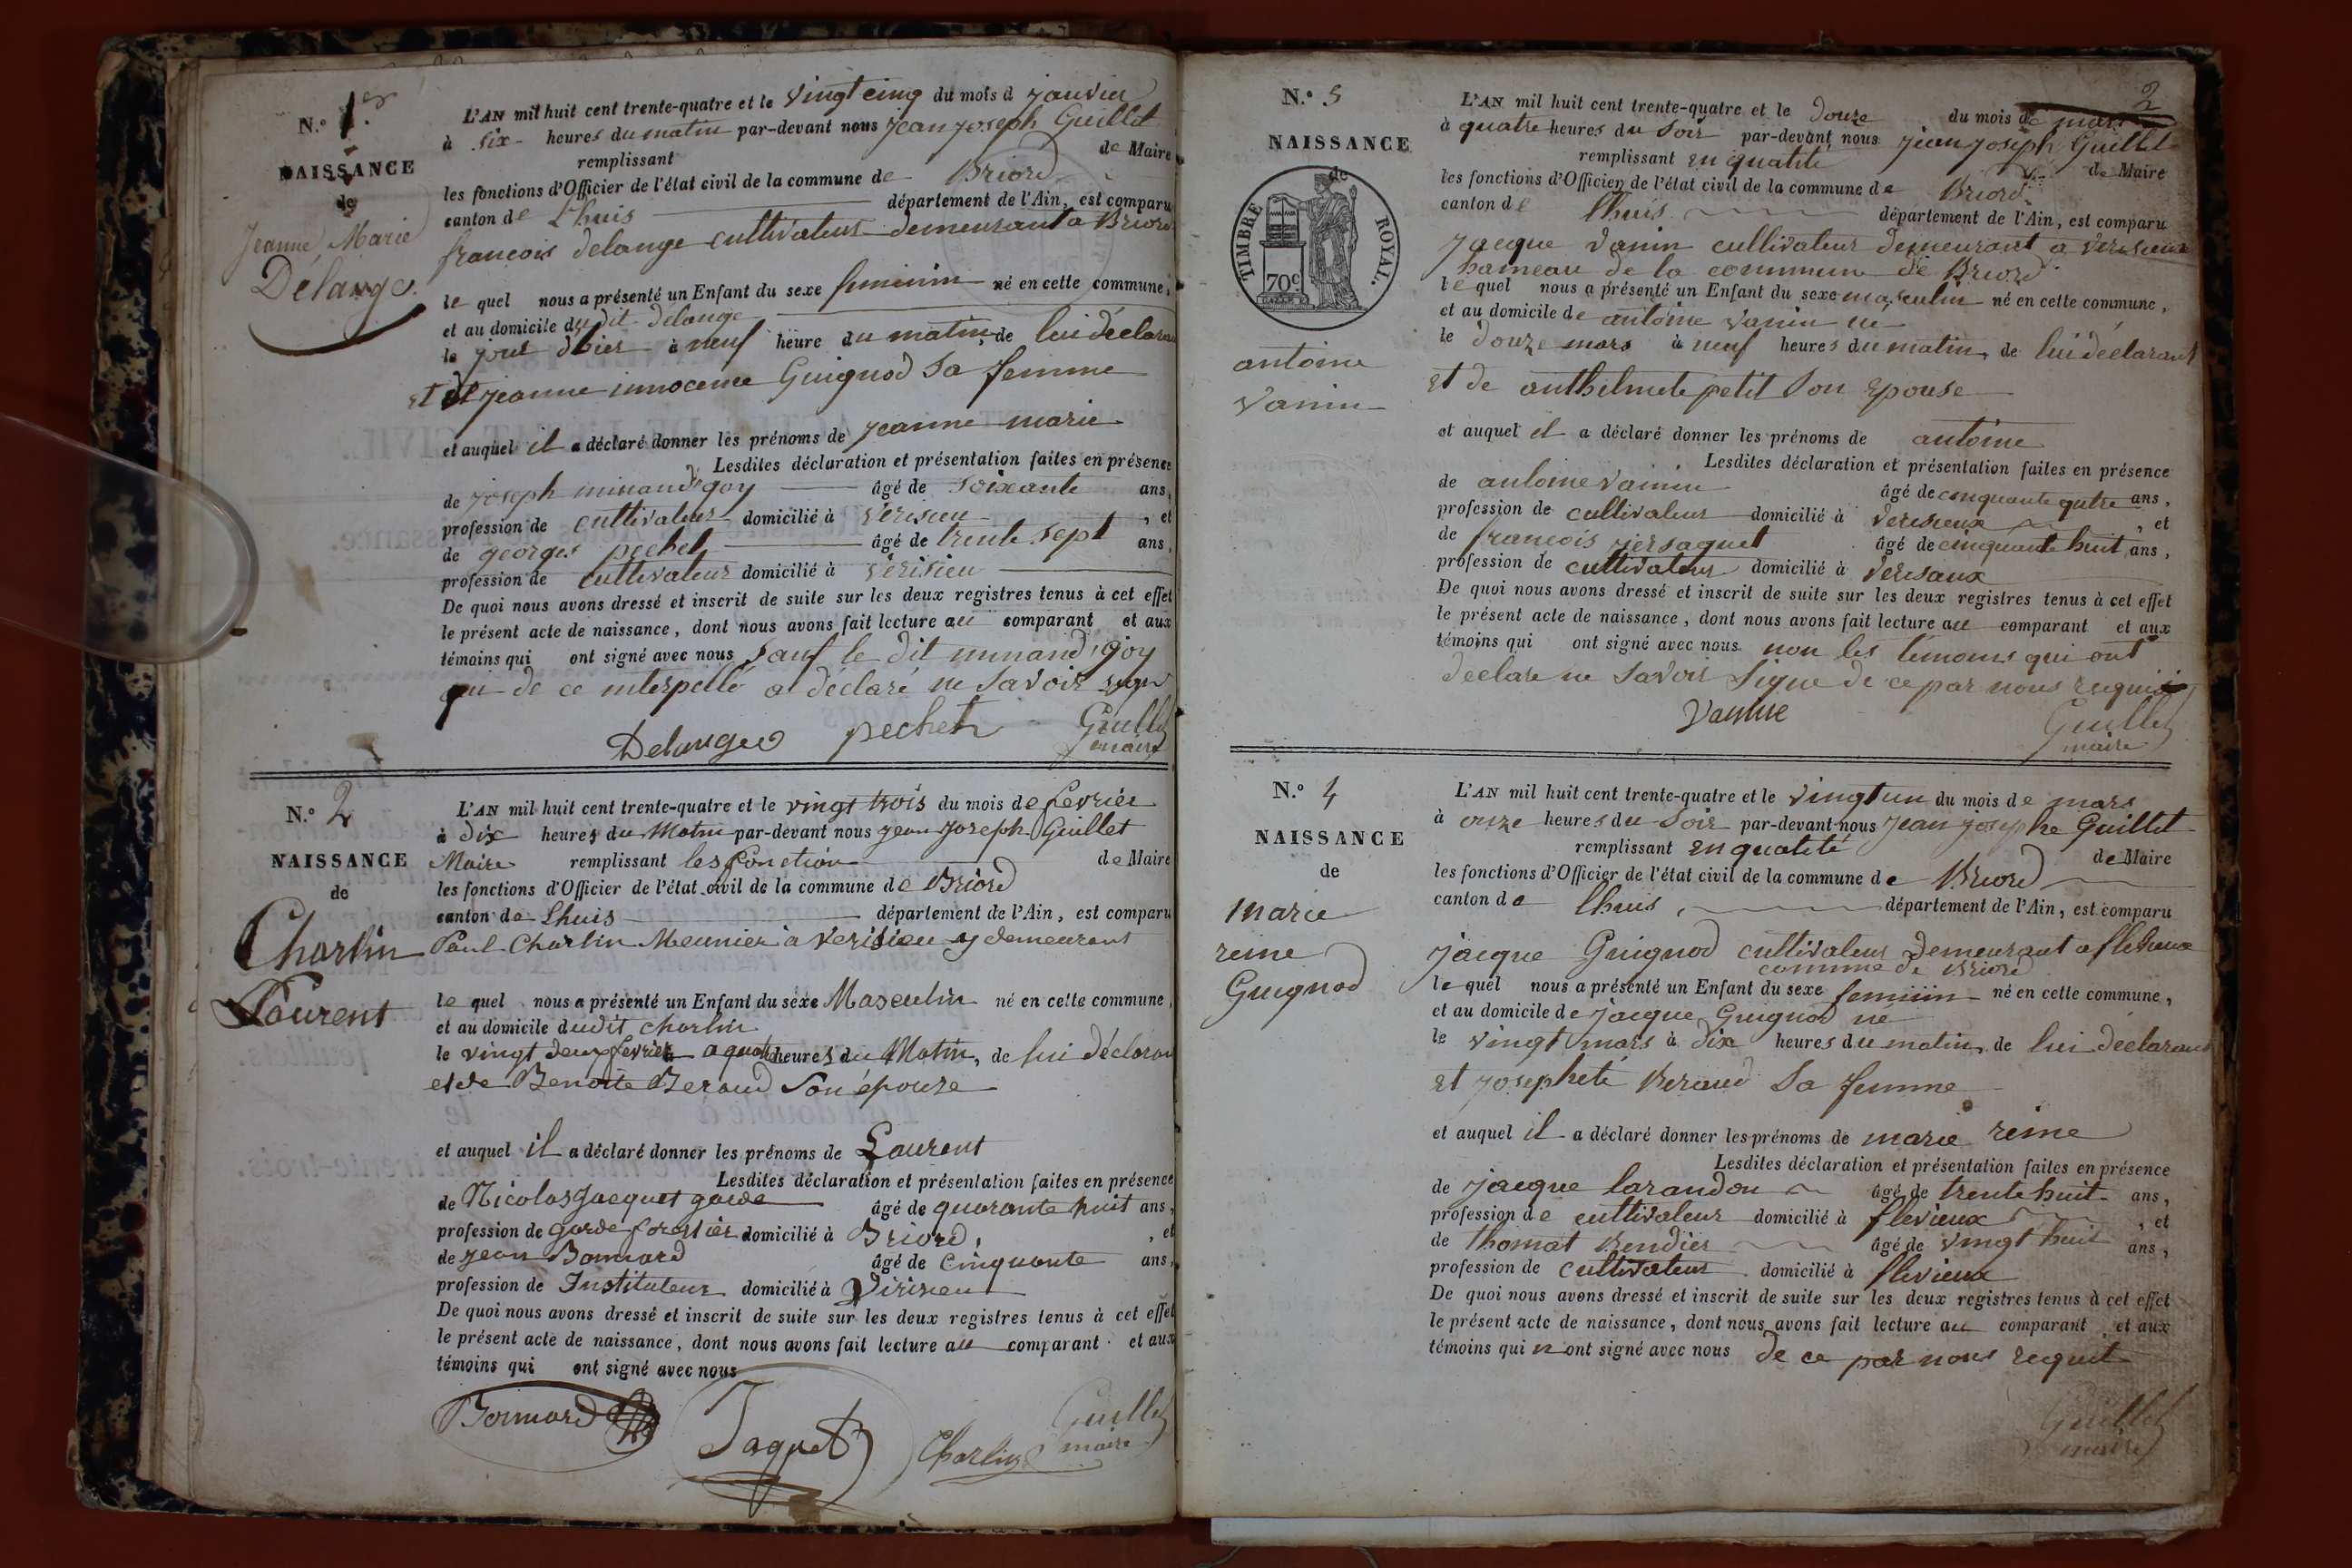 N.° 1.er
NAISSANCE
de
Jeanne Marie
Délange.
L'AN mil huit cent trente-quatre et le vingt cinq du mois d janvier
à six heures du matin par-devant nous jean joseph Guillet
remplissant de Maire
les fonctions d'Officier de l'état civil de la commune de Briord
canton de L'huis département de l'Ain, est comparu
francois delange cultivateur demeurant a Briord
le quel nous a présenté un Enfant du sexe feminin né en cette commune,
et au domicile du dit delange
le jour dhier à neuf heure du matin, de lui déclarant
et de jeanne innocence Guignod sa femme
et auquel il a déclaré donner les prénoms de jeanne marie
Lesdites déclaration et présentation faites en présence
de joseph minand goy âgé de soixante ans,
profession de cultivateur domicilié à verisieu , et
de georges pechet âgé de trente sept ans,
profession de cultivateur domicilié à verisieu
De quoi nous avons dressé et inscrit de suite sur les deux registres tenus à cet effet
le présent acte de naissance, dont nous avons fait lecture au comparant et aux
témoins qui ont signé avec nous sauf le dit minand goy
qui de ce interpellé a déclaré ne savoir signer
Delange pechet Guillet
maire
N.° 2
NAISSANCE
de
Charlin
Laurent
L'AN mil huit cent trente-quatre et le vingt trois du mois de fevrier
à dix heures du Matin par-devant nous jean joseph Guillet
Maire remplissant les fonction de Maire
les fonctions d'Officier de l'état civil de la commune de Briord
canton de Lhuis département de l'Ain, est comparu
Paul Charlin Meunier à Verisieu y demeurant
le quel nous a présenté un Enfant du sexe Masculin né en cette commune,
et au domicile dudit charlin
le vingt deux fevrier a quatre heures du Matin, de lui déclarant
et de Benoite Beraud son épouse
et auquel il a déclaré donner les prénoms de Laurent
Lesdites déclaration et présentation faites en présence
de Nicolas Jacquet garde âgé de quarante huit ans,
profession de garde forestier domicilié à Briord, , et
de jean Bonnard âgé de cinquante ans,
profession de Instituteur domicilié à Virisieu
De quoi nous avons dressé et inscrit de suite sur les deux registres tenus à cet effet
le présent acte de naissance, dont nous avons fait lecture au comparant et aux
témoins qui ont signé avec nous
Bonnard Jaquet Charlin Guillet
maire
2
N.° 3
NAISSANCE
de
TIMBRE ROYAL.
70c.
antoine
vanin
L'AN mil huit cent trente-quatre et le douze du mois de mars
à quatre heures du soir par-devant nous jean joseph Guillet
remplissant en qualité de Maire
les fonctions d'Officier de l'état civil de la commune de Briord
canton de lhuis département de l'Ain, est comparu
jacque vanin cultivateur demeurant a verisieux
hameau de la commune de Briord
le quel nous a présenté un Enfant du sexe masculin né en cette commune,
et au domicile de antoine vanin né
le douze mars à neuf heures du matin, de lui déclarant
et de anthelmete petit son epouse
et auquel il a déclaré donner les prénoms de antoine
Lesdites déclaration et présentation faites en présence
de antoine vanin âgé de cinquante qutre ans,
profession de cultivateur domicilié à verisieux , et
de francois jersaquet âgé de cinquante huit ans,
profession de cultivateur domicilié à verisaux
De quoi nous avons dressé et inscrit de suite sur les deux registres tenus à cet effet
le présent acte de naissance, dont nous avons fait lecture au comparant et aux
témoins qui ont signé avec nous non les temoins qui ont
declare ne savoir signe de ce par nous requis
Vanine Guillet
maire
N.° 4
NAISSANCE
de
marie
reine
Guignod
L'AN mil huit cent trente-quatre et le vingt un du mois de mars
à onze heures du soir par-devant nous jean josephe Guillet
remplissant en qualité de Maire
les fonctions d'Officier de l'état civil de la commune de Briord
canton de lhuis, département de l'Ain, est comparu
jacque Guignod cultivateur demeurant a flevieux
commune de Briord
le quel nous a présenté un Enfant du sexe feminin né en cette commune,
et au domicile de jacque Guignod né
le vingt mars à dix heures du matin, de lui déclarant
et josephete Beraud sa femme
et auquel il a déclaré donner les prénoms de marie reine
Lesdites déclaration et présentation faites en présence
de jacque larandon âgé de trente huit ans,
profession de cultivateur domicilié à flevieux , et
de thomat Bendier âgé de vingt huit ans,
profession de cultivateur domicilié à flevieux
De quoi nous avons dressé et inscrit de suite sur les deux registres tenus à cet effet
le présent acte de naissance, dont nous avons fait lecture au comparant et aux
témoins qui n ont signé avec nous de ce par nous requit
Guillet
maire